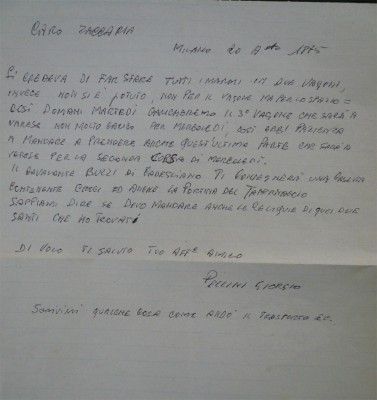 CARO ZABBADIA
MILANO 20 A 1975
SI SPERAVA DI FAR STARE TUTTI I MARMI IN DUE VAGONI,
INVECE NON SI È POTUTO, NON PER IL VAGONE MA PER LO SPAZIO =
COSÌ DOMANI MARTEDÌ CARICHEREMO IL 3° VAGONE CHE SARÀ A
VARESE NON MOLTO PER MERCOLEDÌ, COSÌ ABBI PAZIENZA
A MANDARE A PRENDERE ANCHE QUEST'ULTIMA PARTE CHE SARÀ A
VARESE PER LA SECONDA CORSA DI MERCOLEDÌ.
IL LATORE BUZZI DI TI CONSEGNERÀ UNA
CONTENENTE CROCI ED ANCHE LA PORTINA DEL TABERNACOLO
SAPPIAMI DIRE SE DEVO MANDARE ANCHE LE RELIQUIE DI QUEI DUE
SANTI CHE HO TROVATI
DI VOLO TI SALUTO TUO AFF AMICO
PELLINI GIORGIO
SCRIVIMI QUALCHE COSA COME ANDÒ IL TRASPORTO